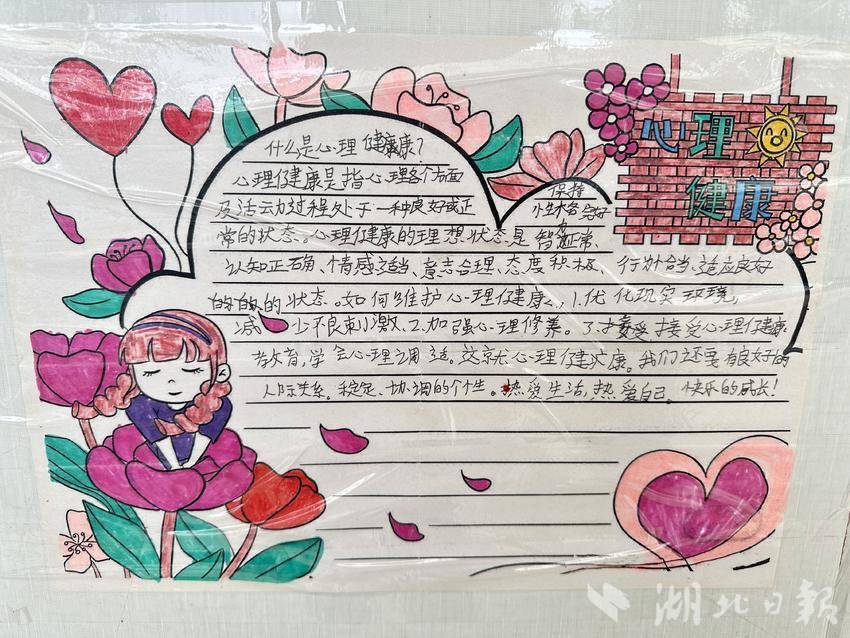 心理
健康
什么是心理健康康?
心理健康是指心理各个方面
及活动过程处于一种良好或正
保持
性格
常的状态。心理健康的理想状态是 智力正常、
认知正确、情感适当、意志合理、态度积极、行为恰当、适应良好
的的的状态。如何维护心理健康、1.优化现实环境,
减少不良刺激、2.加强心理修养。3.接受接受心理健康
教育,学会心理调适。这就是心理健康。我们还要有良好的
人际关系。稳定、协调的个性。热爱生活,热爱自己。快乐的成长!
湖北日报